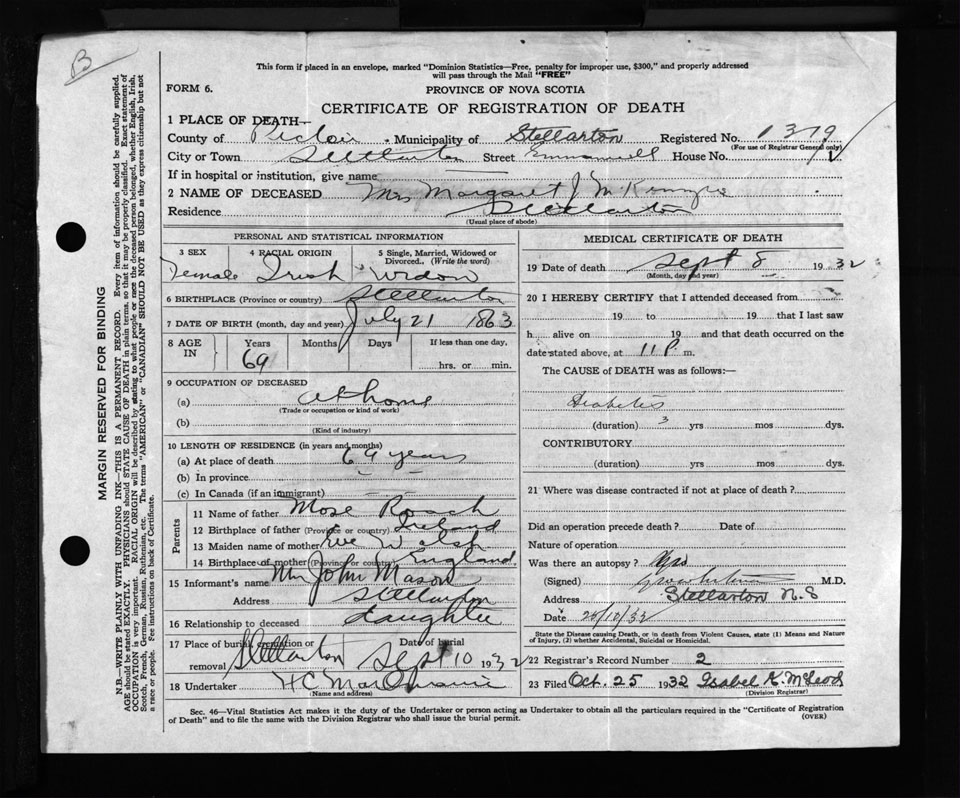 B
This form if placed in an envelope, marked "Dominion Statistics—Free, penalty for improper use, $300," and properly addressed
will pass through the Mail "FREE"
FORM 6.
PROVINCE OF NOVA SCOTIA
CERTIFICATE OF REGISTRATION OF DEATH
1 PLACE OF DEATH—
County of Pictou Municipality of Stellarton Registered No. 1379
(For use of Registrar General only)
City or Town Stellarton Street House No.
If in hospital or institution, give name
2 NAME OF DECEASED Mrs Margaret J McKenzie
Residence Stellarton
(Usual place of abode)
PERSONAL AND STATISTICAL INFORMATION
3 SEX 4 RACIAL ORIGIN 5 Single, Married, Widowed or Divorced, (Write the word)
Female Irish Widow
6 BIRTHPLACE (Province or country) Stellarton
7 DATE OF BIRTH (month, day and year) July 21 1863
8 AGE IN Years Months Days If less than one day,
69 hrs. or min.
9 OCCUPATION OF DECEASED
(a) at home
(Trade or occupation or kind of work)
(b)
(Kind of industry)
10 LENGTH OF RESIDENCE (in years and months)
(a) At place of death 69 years
(b) In province
(c) In Canada (if an immigrant)
Parents
11 Name of father Mose Roach
12 Birthplace of father (Province or country) Ireland
13 Maiden name of mother Eve Walsh
14 Birthplace of mother (Province or country) England
15 Informant's name Mrs John Mason
Address Stellarton
16 Relationship to deceased daughter
17 Place of burial, cremation or removal Stellarton Date of burial Sept 10 1932
18 Undertaker H C
(Name and address)
MEDICAL CERTIFICATE OF DEATH
19 Date of death Sept 8 1932
(Month, day and year)
20 I HEREBY CERTIFY that I attended deceased from
19 to 19 that I last saw
h alive on 19 and that death occurred on
date stated above, at 11 P m.
The CAUSE of DEATH was as follows:—
Diabetes
(duration) 3 yrs mos dys.
CONTRIBUTORY
(duration) yrs mos dys.
21 Where was disease contracted if not at place of death?
Did an operation precede death? Date of
Nature of operation
Was there an autopsy?
(Signed) M.D.
Address Stellarton N.S
Date 24/10/32
State the Disease causing Death, or in death from Violent Causes, state (1) Means and Nature
of Injury, (2) whether Accidental, Suicidal or Homicidal.
22 Registrar's Record Number 2
23 Filed Oct. 25 1932 Isabel K. McLeod
(Division Registrar)
Sec. 46—Vital Statistics Act makes it the duty of the Undertaker or person acting as Undertaker to obtain all the particulars required in the "Certificate of Registration
of Death" and to file the same with the Division Registrar who shall issue the burial permit.
(OVER)
MARGIN RESERVED FOR BINDING
N.B.—WRITE PLAINLY WITH UNFADING INK—THIS IS A PERMANENT RECORD. Every item of information should be carefully supplied.
AGE should be stated EXACTLY. PHYSICIANS should STATE CAUSE OF DEATH in plain terms, so that it may be properly classified. Exact statement of
OCCUPATION is very important. RACIAL ORIGIN will be described by stating to what people or race the deceased person belonged, whether English, Irish,
Scotch, French, German, Russian, Ruthenian, etc. The terms "AMERICAN" or "CANADIAN" SHOULD NOT BE USED as they express citizenship but not
a race or people. See instructions on back of Certificate.